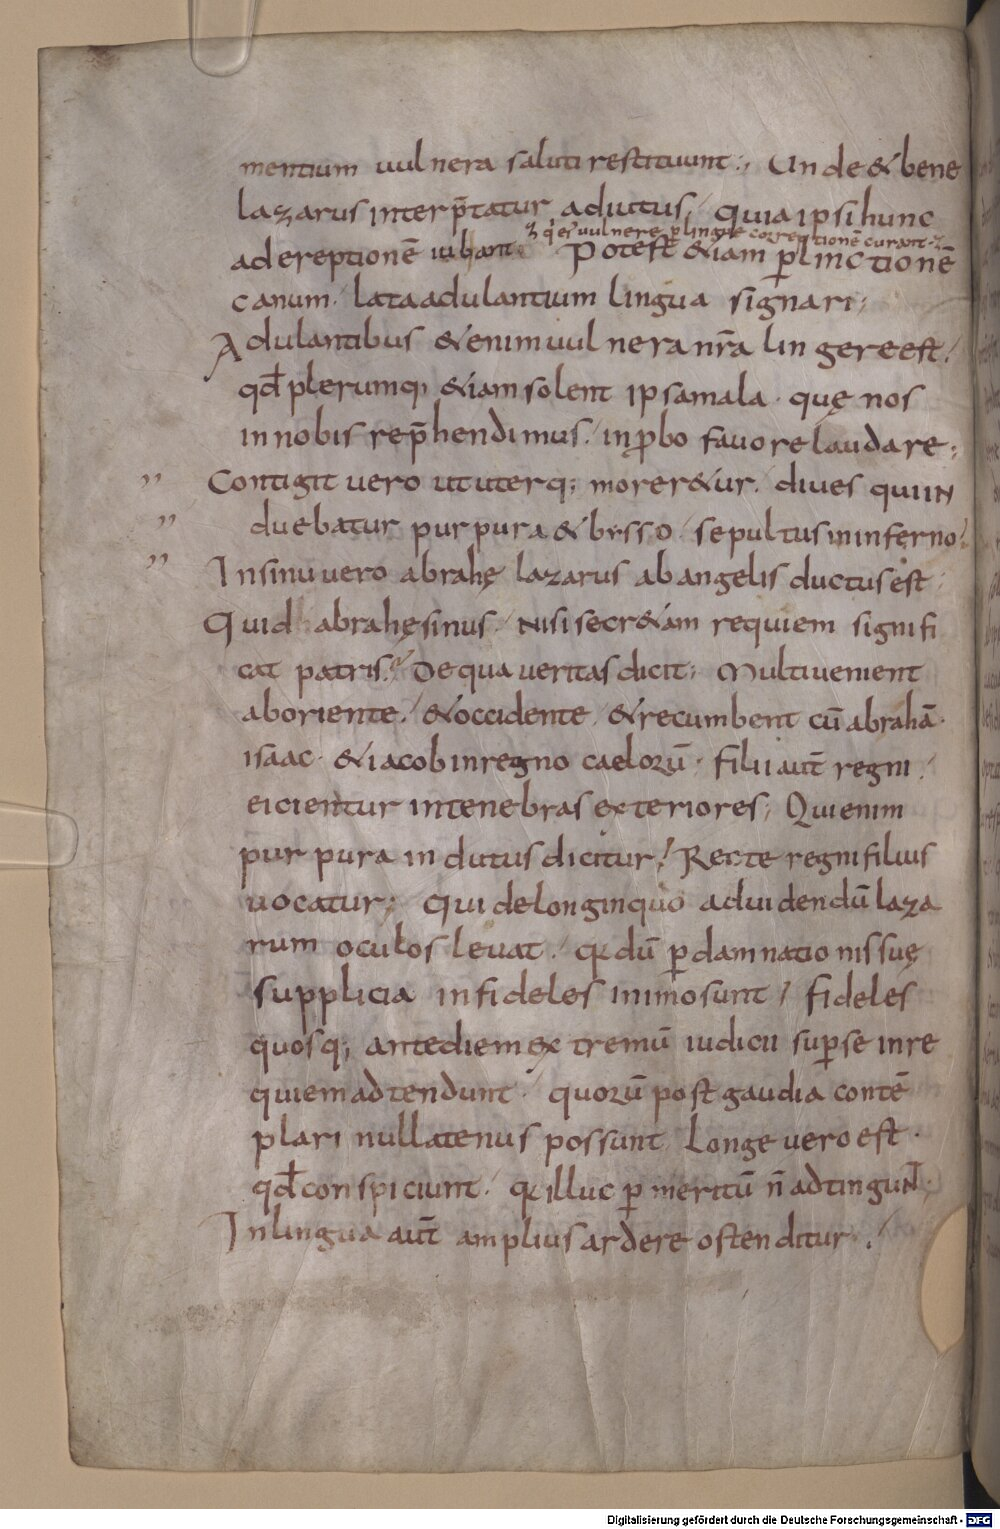 mentium uulnera saluti restituunt; Unde & bene
lazarus interp̄tatur adiutus, quia ipsi hunc
q' ei' uulnere p linguę correptionē curant
ad ereptionē iubant Potest &iam p̱ linctionē
canum. lata adulantium lingua signari;
Adulantibus &enim uulnera nr̄a lingere est.
qđ plerumq; &iam solent ipsa mala. quę nos
in nobis rep̄hendimus. inp̱bo fauore laudare;
,, Contigit uero ut uterq; morer&ur. diues qui in
,, duebatur purpura & bysso. sepultus in inferno.
,, In sinu uero abrahę lazarus ab angelis ductus est
Quid abrahę sinus. nisi secr&am requiem signifi
cat patris. De qua ueritas dicit; Multi uenient
ab oriente. & occidente. & recumbent cū abrahā.
isaac. & iacob in regno caelorū. filii aut̄ regni.
eicientur in tenebras exteriores; Qui enim
purpura indutus dicitur. Recte regni filius
uocatur; Qui de longinquo ad uidendū laza
rum oculos leuat. qr dū p̱ damnationis suę
supplicia infideles in imo sunt, fideles
quosq; ante diem extremū iudicii sup̱ se in re
quiem adtendunt. quorū post gaudia contē
plari nullatenus possunt Longe uero est.
qđ conspiciunt. qr illuc p̱ meritū n̄ adtingunt.
In lingua aut̄ amplius ardere ostenditur.
Digitalisierung gefördert durch die Deutsche Forschungsgemeinschaft - DFG